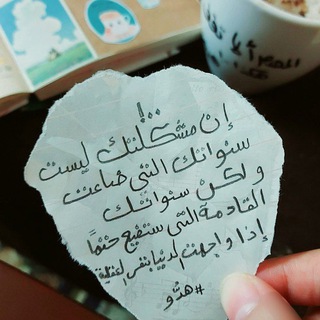 !..
إن مشكلتك ليست
سنواتك التي ضاعت
ولكن سنواتك
القادمة التي ستضيع حتمًا
إذا واجهت الدنيا بنفس العقلية
#هدّو